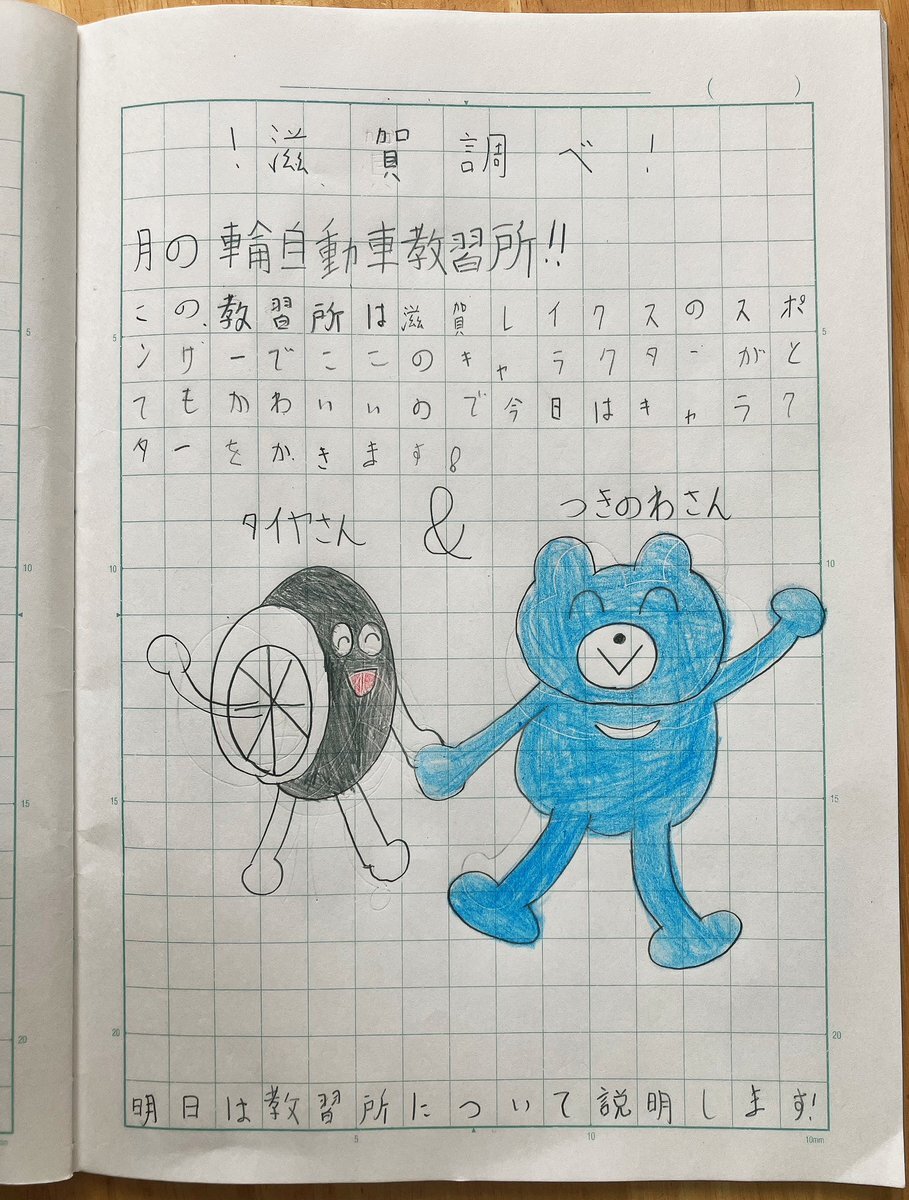 ( )
！滋賀調べ！
月の輪自動車教習所!!
この、教習所は滋賀レイクスのスポ
ンサーでここのキャラクターがと
てもかわいいので今日はキャラク
ターをかきます。
タイヤさん & つきのわさん
5
10
15
20
5
10
15
20
5
10
15
20
明日は教習所について説明します!
5 10 10mm